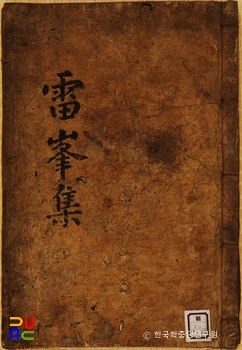 雷峯集
© 한국학중앙연구원